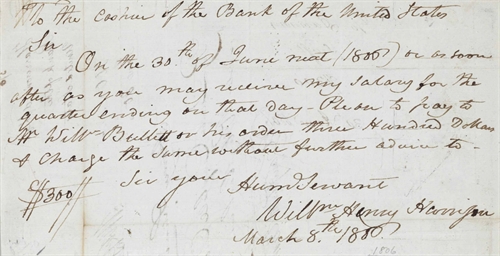 To the Cashier of the Bank of the United States
Sir
On the 30.th of June next (1806) or as soon
after as you may receive my salary for the
quarter ending on that day - Please to pay to
Mr Willm Bullitt or his order three Hundred Dollars
& Charge the same without further advice to -
Sir your
$300
Huml Servant
Willm Henry Harrison
March 8.th 1806.
1806